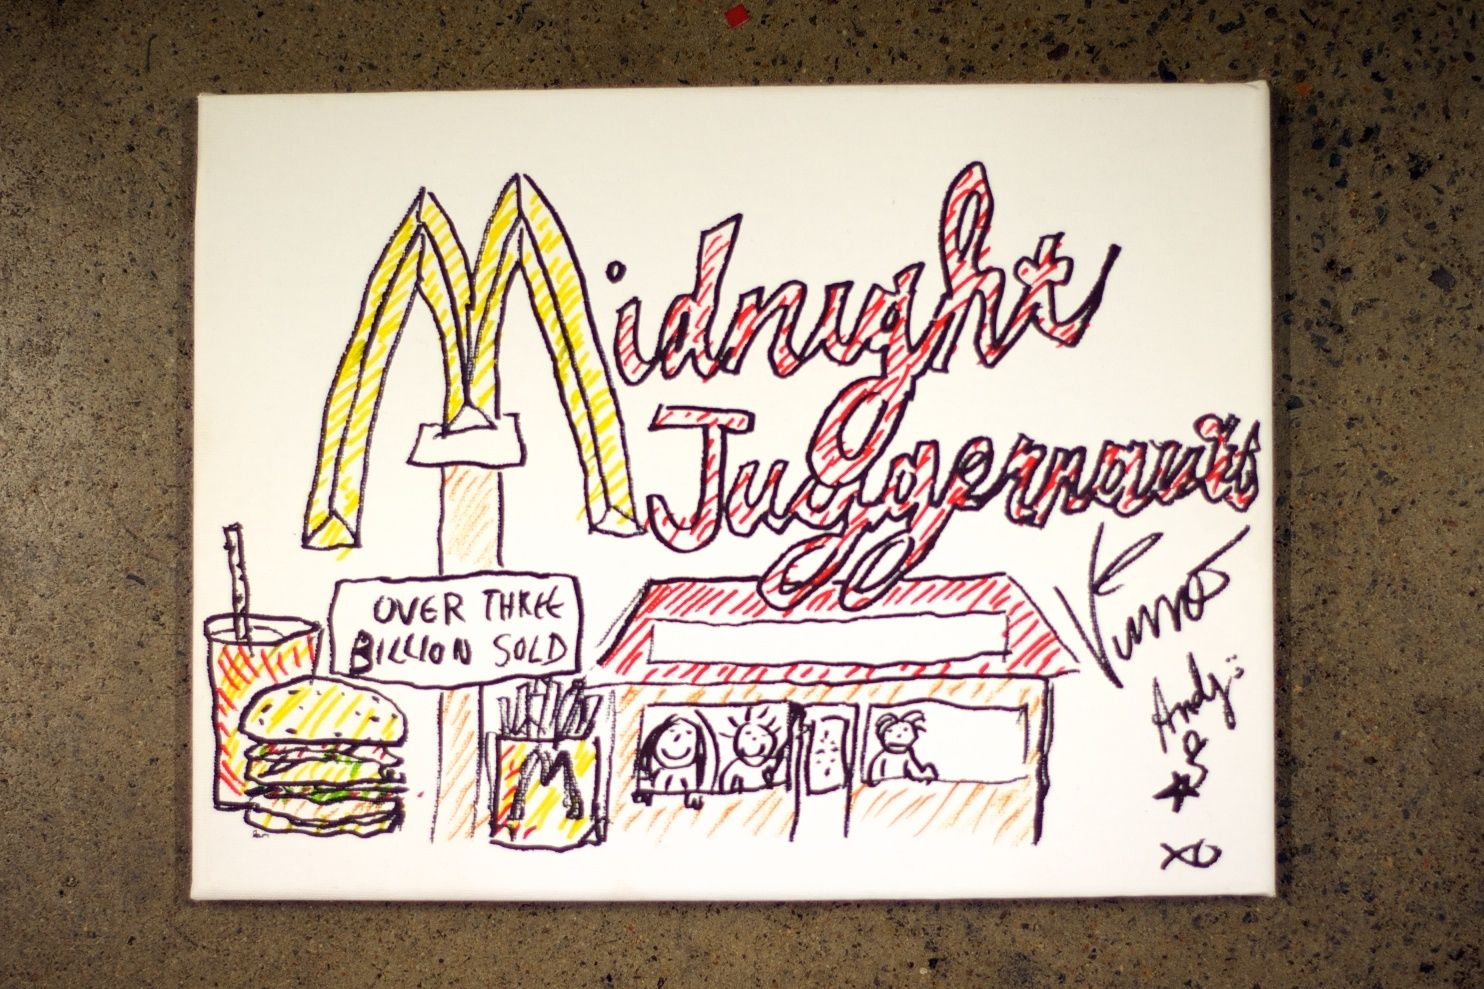 Midnight
Juggernauts
OVER THREE
BILLION SOLD
M
Andy
xo